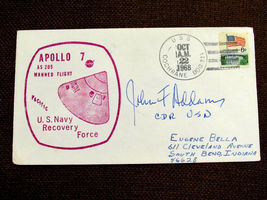 APOLLO 7
AS 205
MANNED FLIGHT
PACIFIC
U.S. Navy
Recovery
Force
U.S.S.
OCT
A.M.
22
1968
COCHRANE DDG 21
6¢
John F Addams
CDR USN
EUGENE BELLA
611 CLEVELAND AVENUE
SOUTH BEND, INDIANA
46628